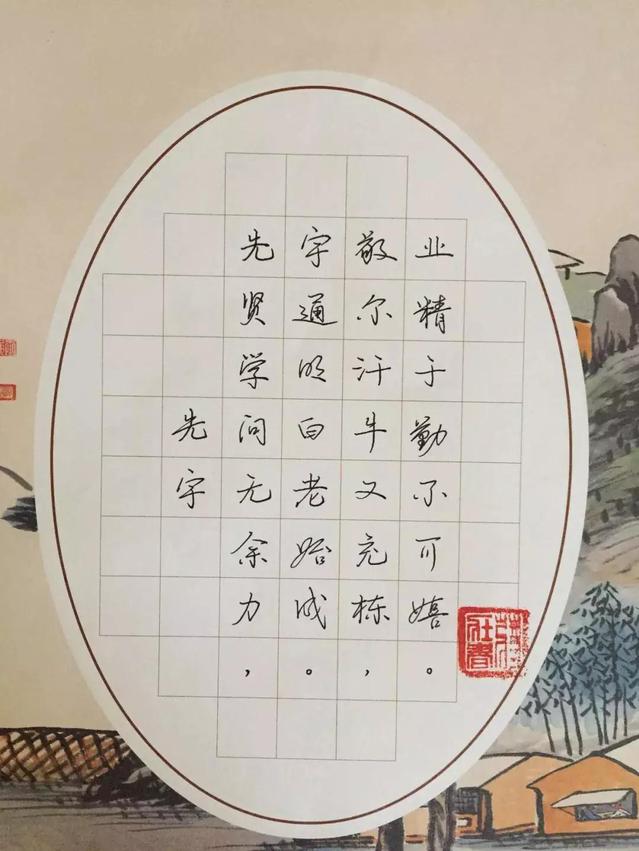 先宇
先贤学问无余力，
宇通明白老始成。
敬尔汗牛又充栋，
业精于勤不可嬉。